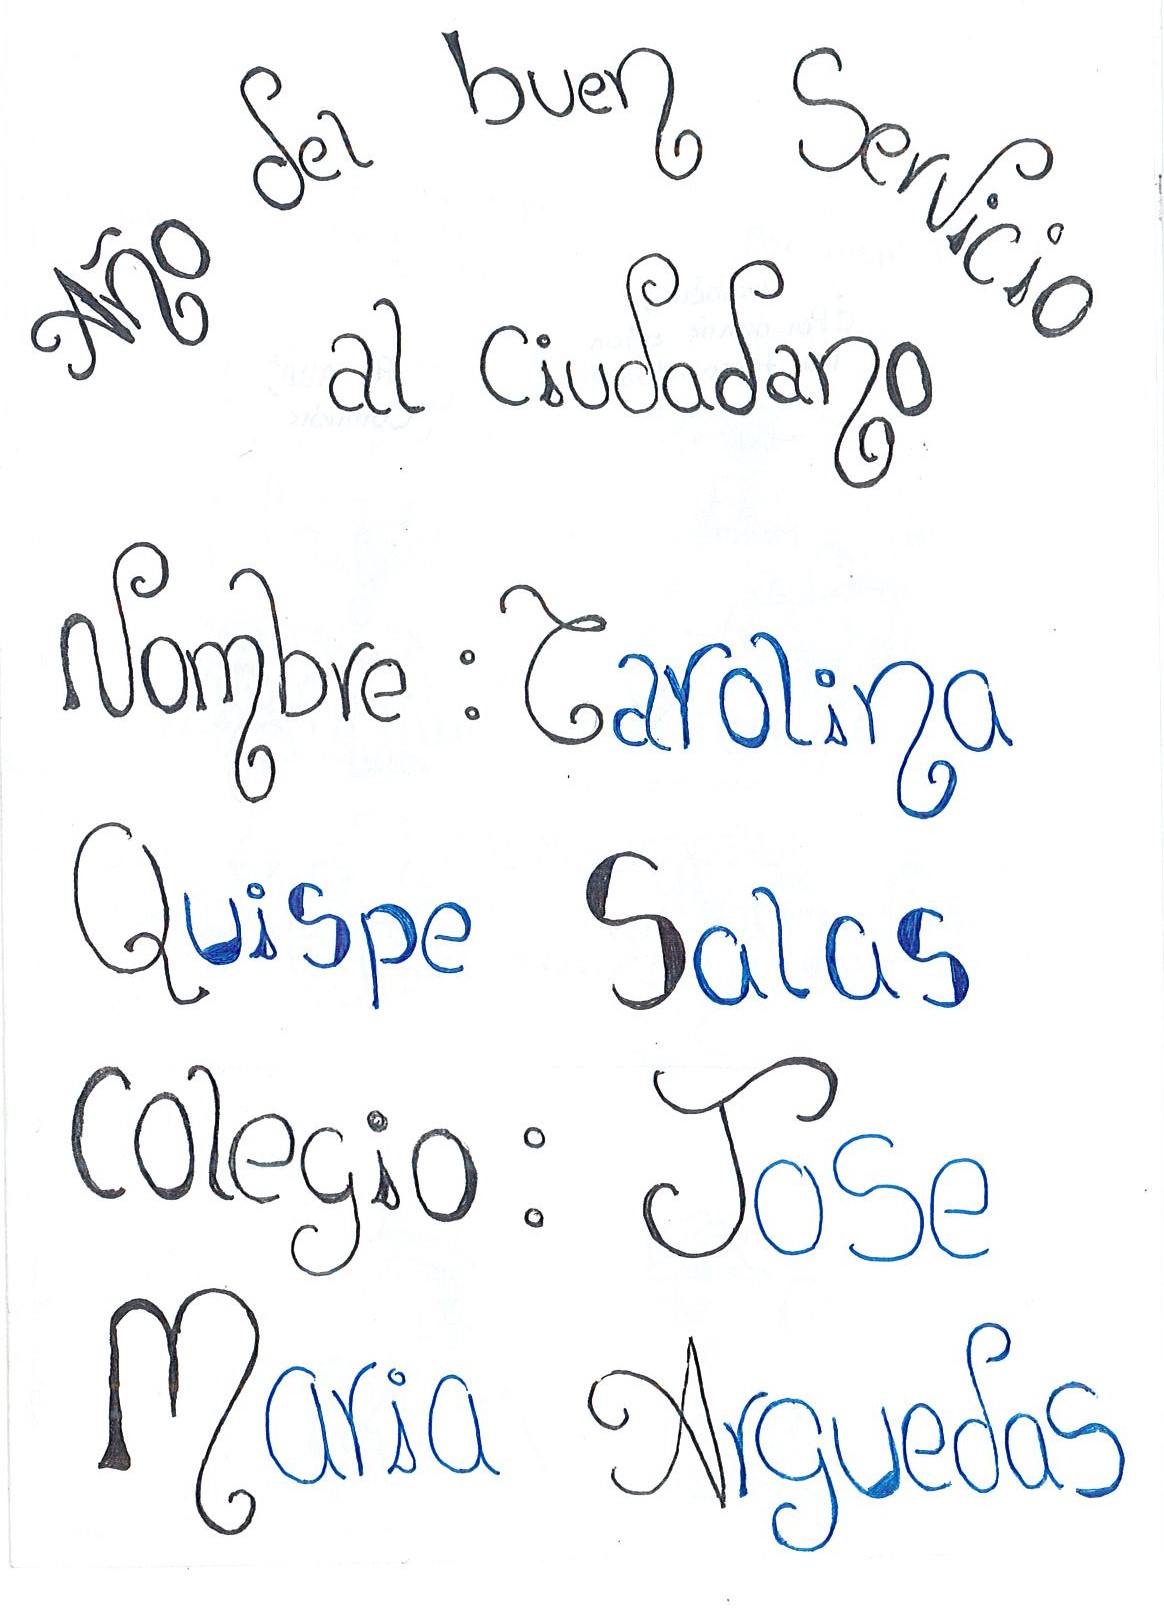 Año del buen Servicio
al Ciudadano
Nombre : Carolina
Quispe Salas
Colegio : Jose
Maria Arguedas